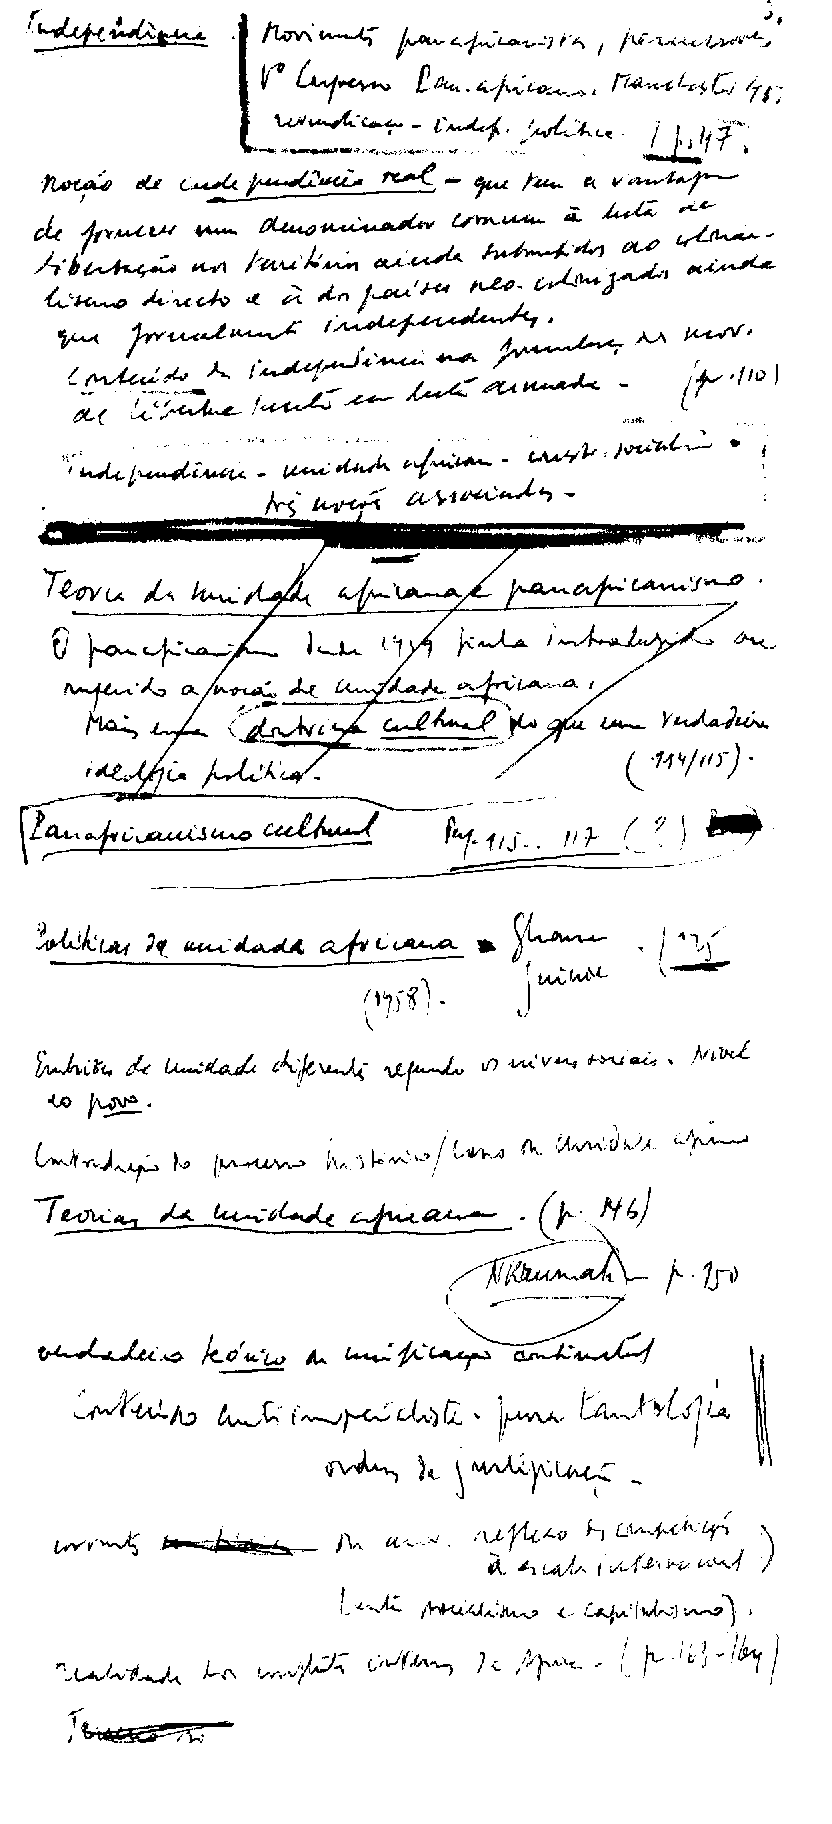 3.
Independência. Movimentos panafricanistas, precursores
Vº Congresso Pan-africano. Manchester 45.
reivindicação - indep. política. (p. 47.
noção de independência real - que tem a vantagem
de fornecer um denominador comum à luta de
libertação nos territórios ainda submetidos ao colonia-
lismo directo e à dos países neo-colonizados ainda
que formalmente independentes.
Conteúdo da independência na dos mov.
de libertação em luta armada - (p. 110)
Independência - unidade african - const. socialis
três noções associadas -
Teoria da unidade africana e panafricanismo.
O panafricanism desde 1919 tinha introduzido ou
referido a noção de unidade africana.
Mais uma doutrina cultural do que uma verdadeira
ideologia política. (114/115).
Panafricanismo cultural Pag. 115.. 117 (?)
Políticas de unidade africana Ghana . (125
(1958). Guiné
de unidade diferentes segundo os níveis sociais. Nível
do povo.
Contradição do processo histórico/ da unidade african
Teorias da unidade africana. (p. 146)
NKrumah p. 150
verdadeiro teórico da unificação continental
Conteúdo antiimperialista. pura tautologia
ordem de justificação -
correntes reflexo da competição
à escala internacional)
(entre socialismo e capitalismo).
realidade dos conflitos internos de - (p. 163-164)